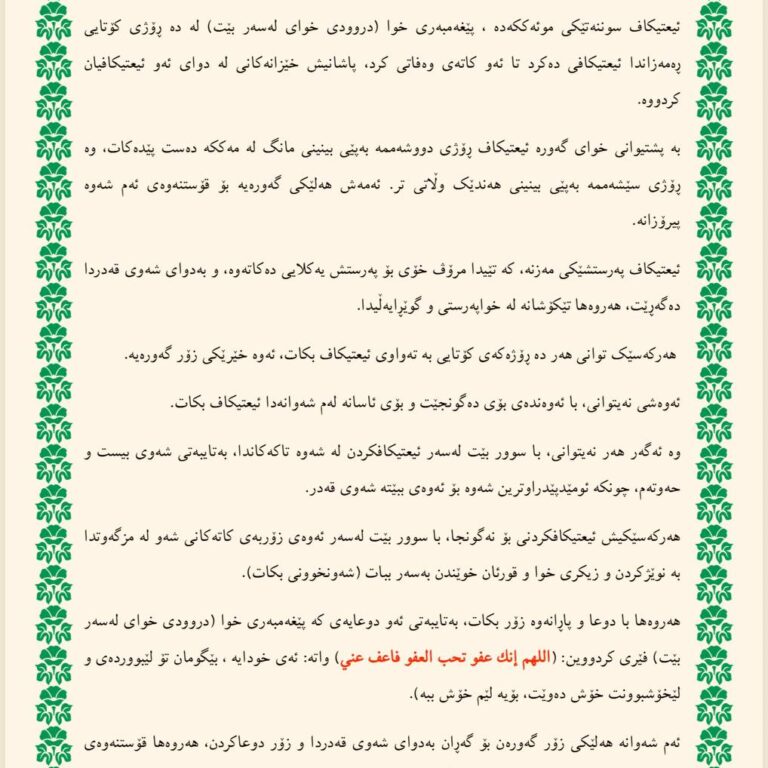 ئیعتیکاف سوننەتێکی موئەککەدە ، پێغەمبەری خوا (دروودی خوای لەسەر بێت) لە دە ڕۆژی کۆتایی
ڕەمەزاندا ئیعتیکافی دەکرد تا ئەو کاتەی وەفاتی کرد، پاشانیش خێزانەکانی لە دوای ئەو ئیعتیکافیان
کردووە.
بە پشتیوانی خوای گەورە ئیعتیکاف ڕۆژی دووشەممە بەپێی بینینی مانگ لە مەککە دەست پێدەکات، وە
ڕۆژی سێشەممە بەپێی بینینی هەندێک وڵاتی تر. ئەمەش هەلێکی گەورەیە بۆ قۆستنەوەی ئەم شەوە
پیرۆزانە.
ئیعتیکاف پەرستشێکی مەزنە، کە تێیدا مرۆڤ خۆی بۆ پەرستش یەکلایی دەکاتەوە، و بەدوای شەوی قەدردا
دەگەڕێت، هەروەها تێکۆشانە لە خواپەرستی و گوێڕایەڵیدا.
هەرکەسێک توانی هەر دە ڕۆژەکەی کۆتایی بە تەواوی ئیعتیکاف بکات، ئەوە خێرێکی زۆر گەورەیە.
ئەوەشی نەیتوانی، با ئەوەندەی بۆی دەگونجێت و بۆی ئاسانە لەم شەوانەدا ئیعتیکاف بکات.
وە ئەگەر هەر نەیتوانی، با سوور بێت لەسەر ئیعتیکافکردن لە شەوە تاکەکاندا، بەتایبەتی شەوی بیست و
حەوتەم، چونکە ئومێدپێدراوترین شەوە بۆ ئەوەی ببێتە شەوی قەدر.
هەرکەسێکیش ئیعتیکافکردنی بۆ نەگونجا، با سوور بێت لەسەر ئەوەی زۆربەی کاتەکانی شەو لە مزگەوتدا
بە نوێژکردن و زیکری خوا و قورئان خوێندن بەسەر ببات (شەونخوونی بکات).
هەروەها با دوعا و پاڕانەوە زۆر بکات، بەتایبەتی ئەو دوعایەی کە پێغەمبەری خوا (دروودی خوای لەسەر
بێت) فێری کردووین: (اللهم إنك عفو تحب العفو فاعف عني) واتە: ئەی خودایە ، بێگومان تۆ لێبووردەی و
لێخۆشبوونت خۆش دەوێت، بۆیە لێم خۆش ببە).
ئەم شەوانە هەلێکی زۆر گەورەن بۆ گەڕان بەدوای شەوی قەدردا و زۆر دوعاکردن، هەروەها قۆستنەوەی